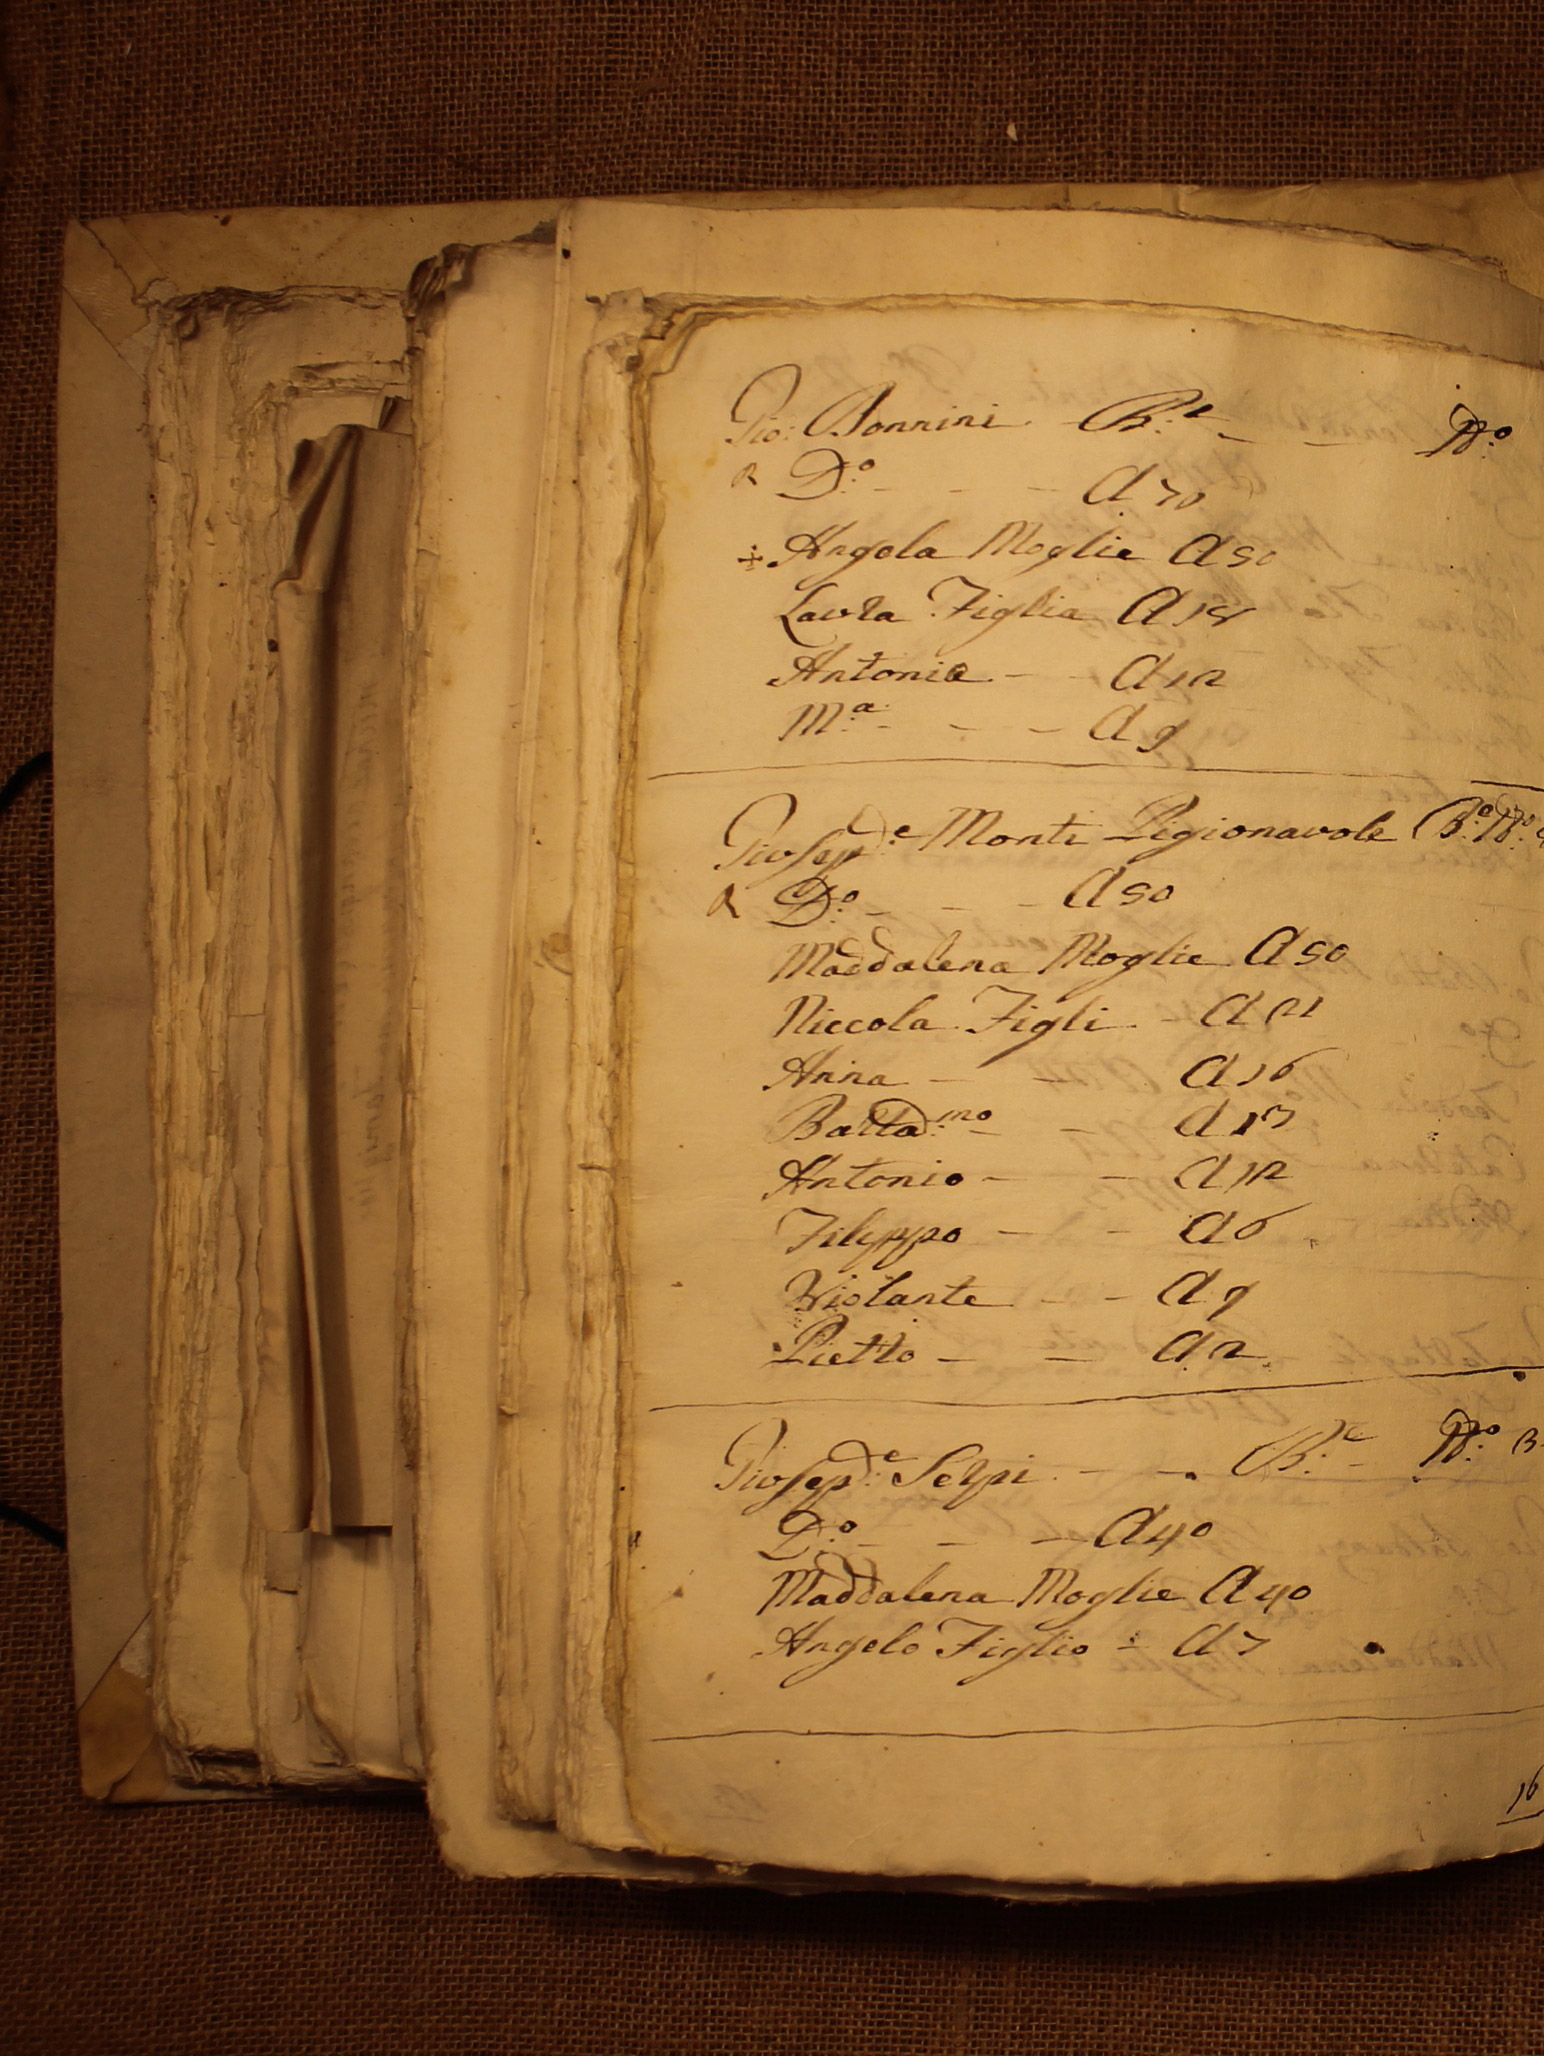 Gio: Bonnini B:e - - N:o
R D:o - - - A 70
+ Angola Moglie A 50
Laura Figlia A 18
Antonia - - A 12
M:a - - - A 9
Giosepp:e Monti Pigionavole B:e N:o
R D:o - - - A 50
Maddalena Moglie A 50
Niccola Figli - A 21
Anna - - A 16
Bartta:mo - - A 13
Antonio - - A 12
Filippo - - A 6
Violante - - A 9
Pietro - - A 2
Giosepp:e Serpi - - B:e - N:o 3
D:o - - - A 40
Maddalena Moglie A 40
Angelo Figlio - A 7
16